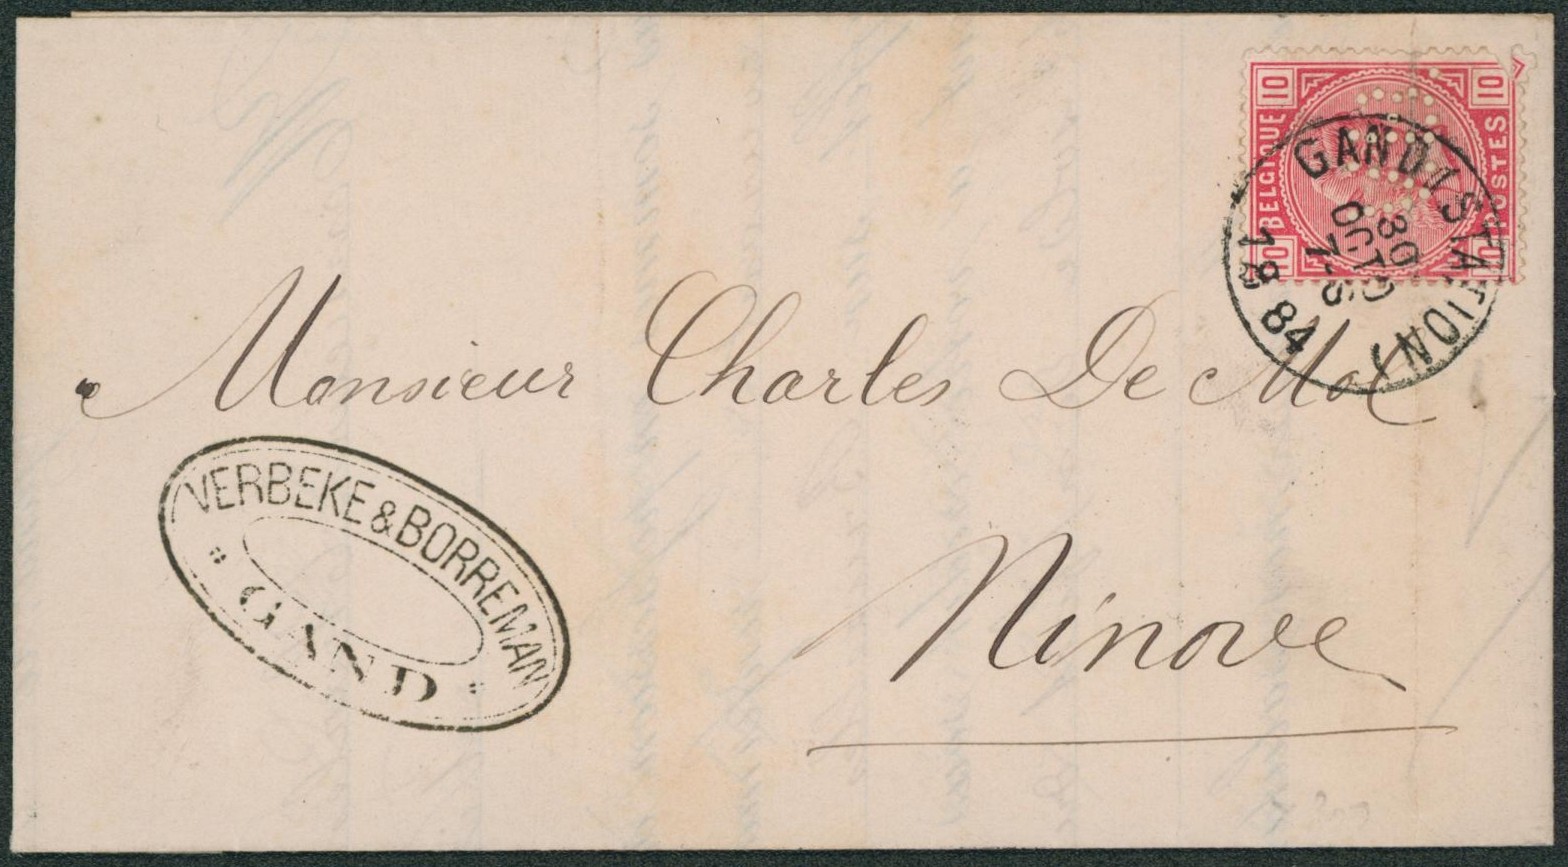 10 10
BELGIQUE POSTES
10 10
GAND (STATION)
30
OCT
7-S
1884
Monsieur Charles De Mol
Ninove
VERBEKE & BORREMAN
GAND